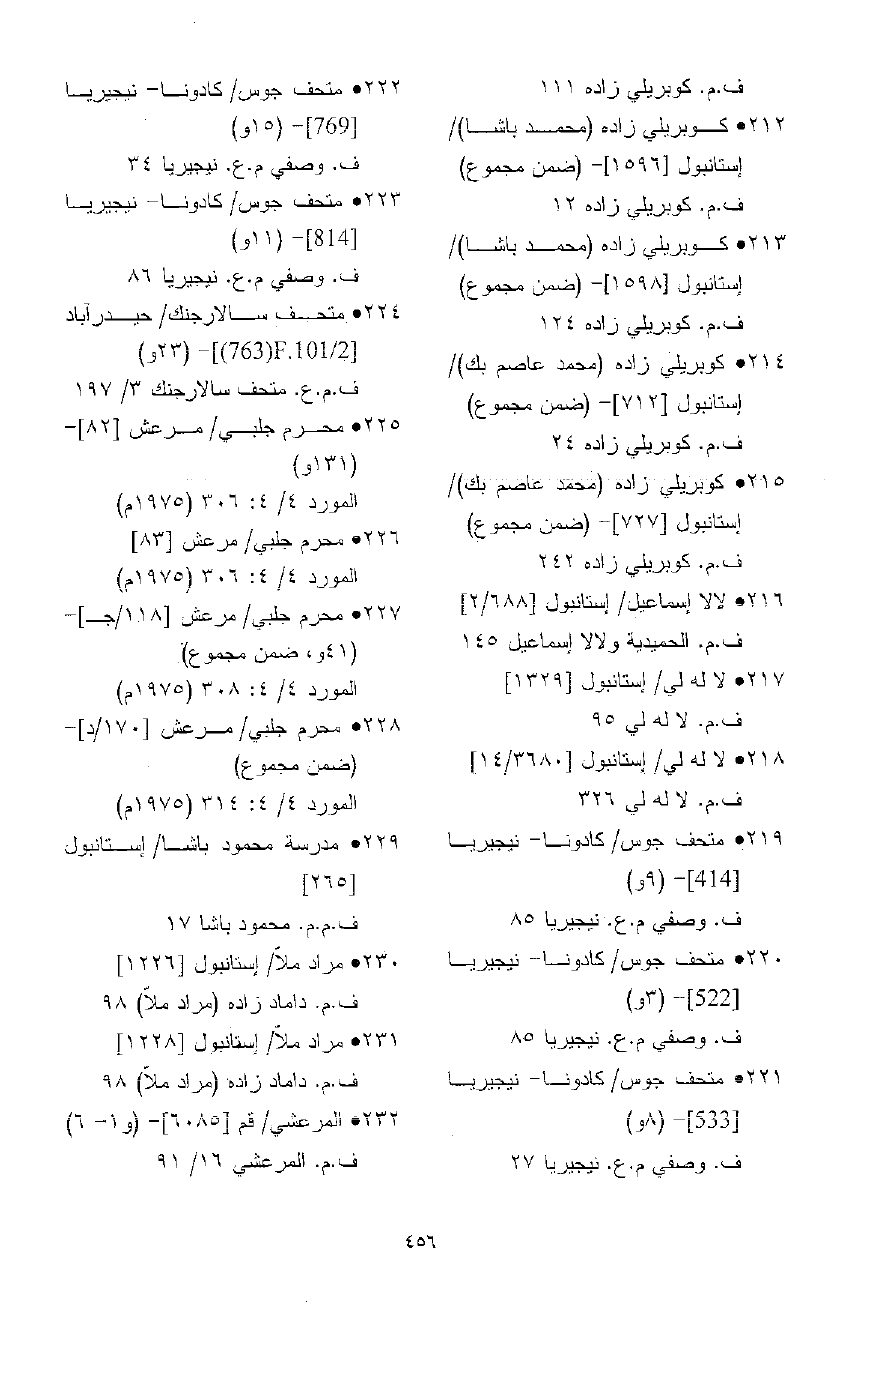 ف.م. كوبريلي زاده ١١١
٢١٢• كوبريلي زاده (محمد باشا)/
إستانبول [١٥٩٦]- (ضمن مجموع)
ف.م. كوبريلي زاده ١٢
٢١٣• كوبريلي زاده (محمد باشا)/
إستانبول [١٥٩٨]- (ضمن مجموع)
ف.م. كوبريلي زاده ١٢٤
٢١٤• كوبريلي زاده (محمد عاصم بك)/
إستانبول [٧١٢]- (ضمن مجموع)
ف.م. كوبريلي زاده ٢٤
٢١٥• كوبريلي زاده (محمد عاصم بك)/
إستانبول [٧٢٧]- (ضمن مجموع)
ف.م. كوبريلي زاده ٢٤٢
٢١٦• لالا إسماعيل/ إستانبول [٢/٦٨٨]
ف.م. الحميدية ولالا إسماعيل ١٤٥
٢١٧• لا له لي/ إستانبول [١٣٢٩]
ف.م. لا له لي ٩٥
٢١٨• لا له لي/ إستانبول [١٤/٣٦٨٠]
ف.م. لا له لي ٣٢٦
٢١٩• متحف جوس/ كادونا- نيجيريا
[414]- (٩و)
ف. وصفي م.ع. نيجيريا ٨٥
٢٢٠• متحف جوس/ كادونا- نيجيريا
[522]- (٣و)
ف. وصفي م.ع. نيجيريا ٨٥
٢٢١• متحف جوس/ كادونا- نيجيريا
[533]- (٨و)
ف. وصفي م.ع. نيجيريا ٢٧
٢٢٢• متحف جوس/ كادونا- نيجيريا
[769]- (١٥و)
ف. وصفي م.ع. نيجيريا ٣٤
٢٢٣• متحف جوس/ كادونا- نيجيريا
[814]- (١١و)
ف. وصفي م.ع. نيجيريا ٨٦
٢٢٤• متحف سالارجنك/ حيدرآباد
[(763)F.101/2]- (٢٣و)
ف.م.ع. متحف سالارجنك ٣/ ١٩٧
٢٢٥• محرم جلبي/ مرعش [٨٢]-
(١٣١و)
المورد ٤/ ٤: ٣٠٦ (١٩٧٥م)
٢٢٦• محرم جلبي/ مرعش [٨٣]
المورد ٤/ ٤: ٣٠٦ (١٩٧٥م)
٢٢٧• محرم جلبي/ مرعش [١١٨/جـ]-
(٤١و، ضمن مجموع)
المورد ٤/ ٤: ٣٠٨ (١٩٧٥م)
٢٢٨• محرم جلبي/ مرعش [١٧٠/د]-
(ضمن مجموع)
المورد ٤/ ٤: ٣١٤ (١٩٧٥م)
٢٢٩• مدرسة محمود باشا/ إستانبول
[٢٦٥]
ف.م.م. محمود باشا ١٧
٢٣٠• مراد ملاّ/ إستانبول [١٢٢٦]
ف.م. داماد زاده (مراد ملاّ) ٩٨
٢٣١• مراد ملاّ/ إستانبول [١٢٢٨]
ف.م. داماد زاده (مراد ملاّ) ٩٨
٢٣٢• المرعشي/ قم [٦٠٨٥]- (و١- ٦)
ف.م. المرعشي ١٦/ ٩١
٤٥٦